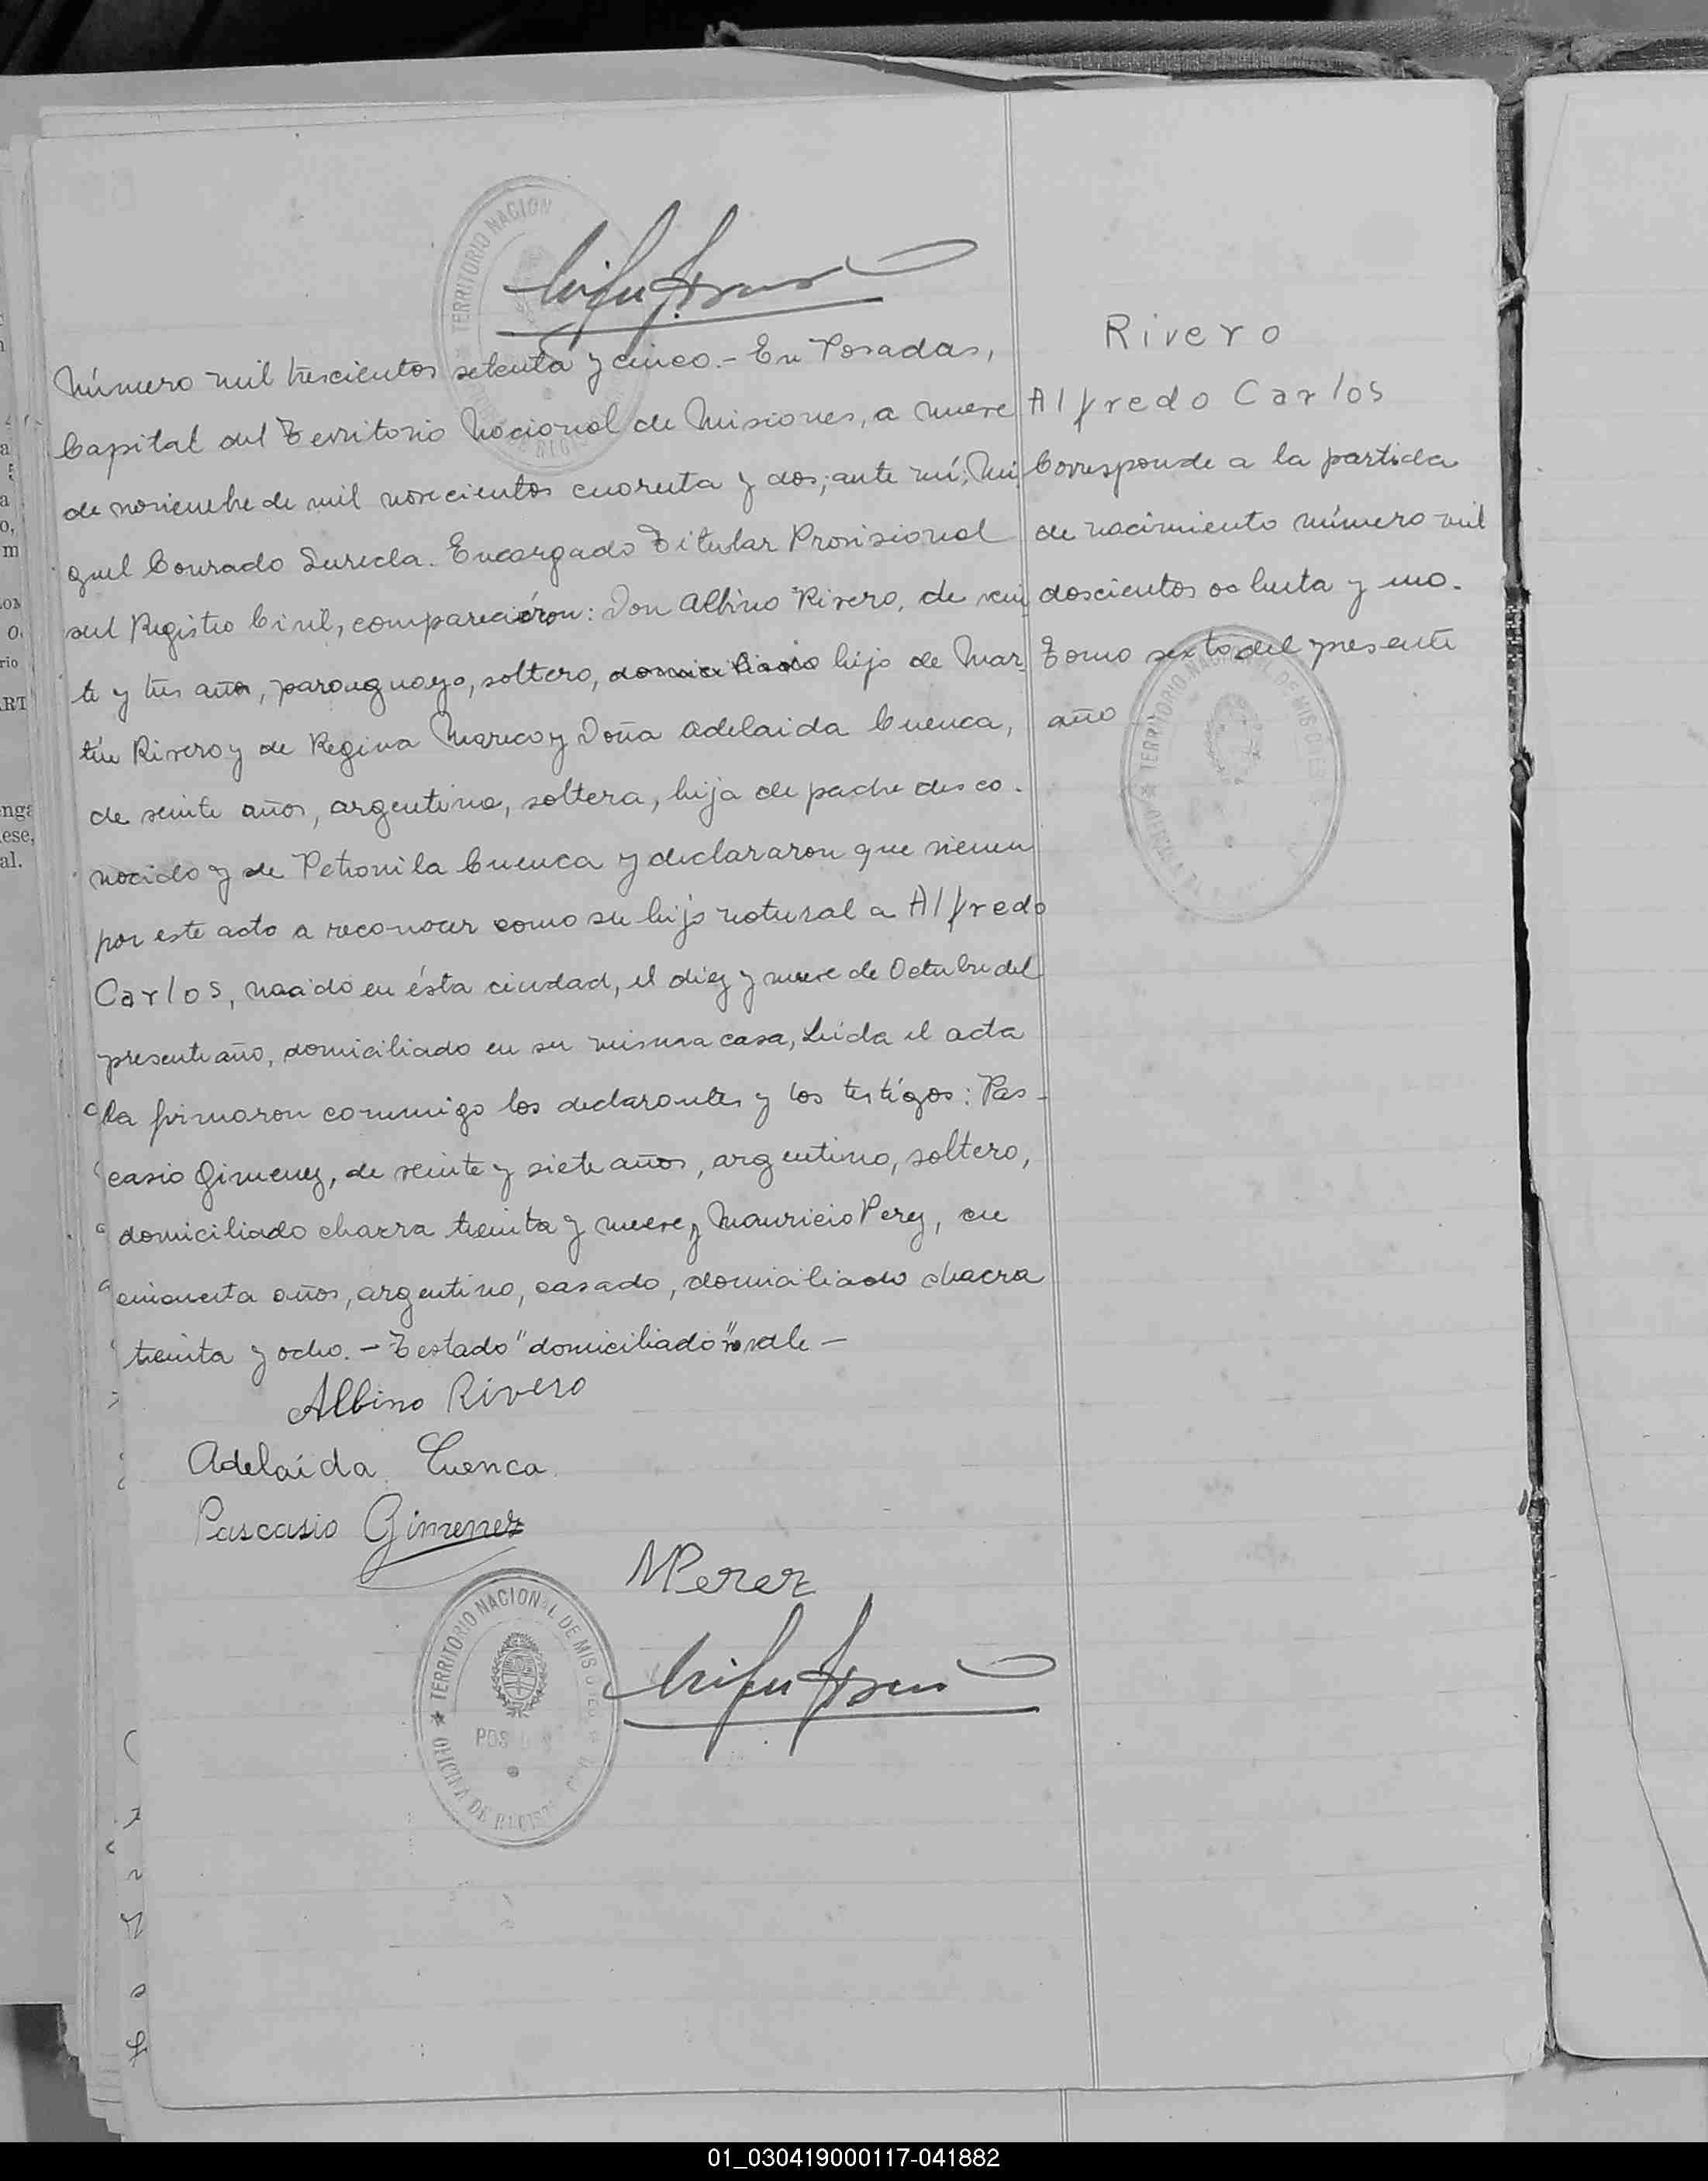 TERRITORIO NACION
Número mil trescientos setenta y cinco.- En Posadas,
Capital del Territorio Nacional de Misiones, a nueve
de noviembre de mil novecientos cuarenta y dos; ante mí, Mi
guel Conrado Surecla. Encargado Titular Provisional
del Registro Civil, comparecieron: Don Albino Rivero, de vein
te y tres años, paraguayo, soltero, domiciliado hijo de Mar
tín Rivero y de Regina Mareco y Doña Adelaida Cuenca,
de veinte años, argentina, soltera, hija de padre desco-
nocido y de Petronila Cuenca y declararon que vienen
por este acto a reconocer como su hijo natural a Alfredo
Carlos, nacido en ésta ciudad, el diez y nueve de Octubre del
presente año, domiciliado en su misma casa, Leída el acta
la firmaron conmigo los declarantes y los testigos: Pas-
casio Gimenez, de veinte y siete años, argentino, soltero,
domiciliado chacra treinta y nueve y Mauricio Perez, de
cincuenta años, argentino, casado, domiciliado chacra
treinta y ocho.- Testado "domiciliado" no vale-
Albino Rivero
Adelaida Cuenca
Pascasio Gimenez
MPerez
TERRITORIO NACIONAL DE MISIONES
OFICINA DE REGIST
POS
Rivero
Alfredo Carlos
Corresponde a la partida
de nacimiento número mil
doscientos ochenta y uno.
Tomo sexto del presente
año
TERRITORIO NACIONAL DE MISIONES
01_030419000117-041882